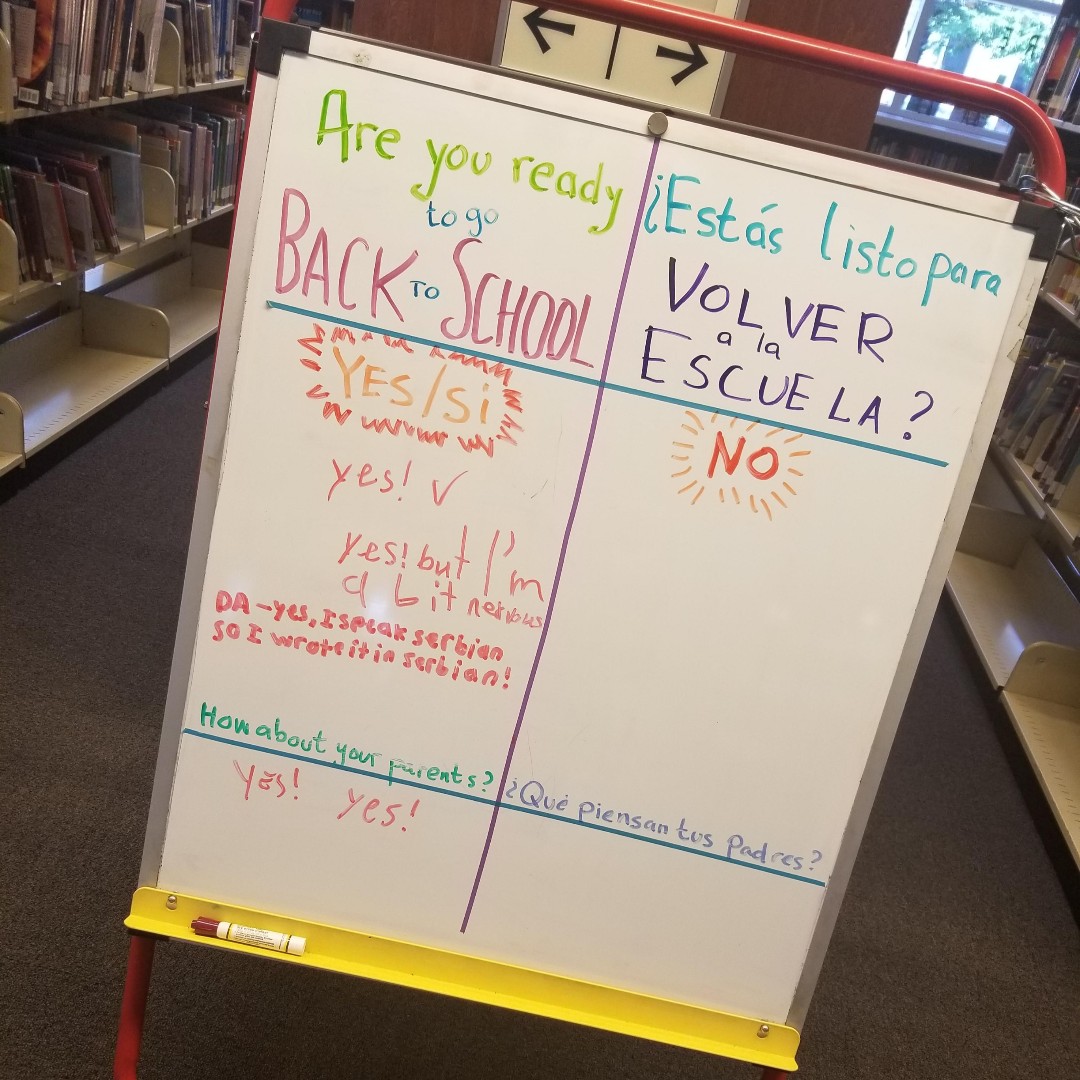 Are you ready
to go
BACK TO SCHOOL
¿Estás listo para
VOLVER
a la
ESCUELA?
YES/Si
NO
yes! ✓
yes! but I'm
a bit nervous
DA - yes, I speak serbian
so I wrote it in serbian!
How about your parents?
yes! yes!
¿Qué piensan tus padres?